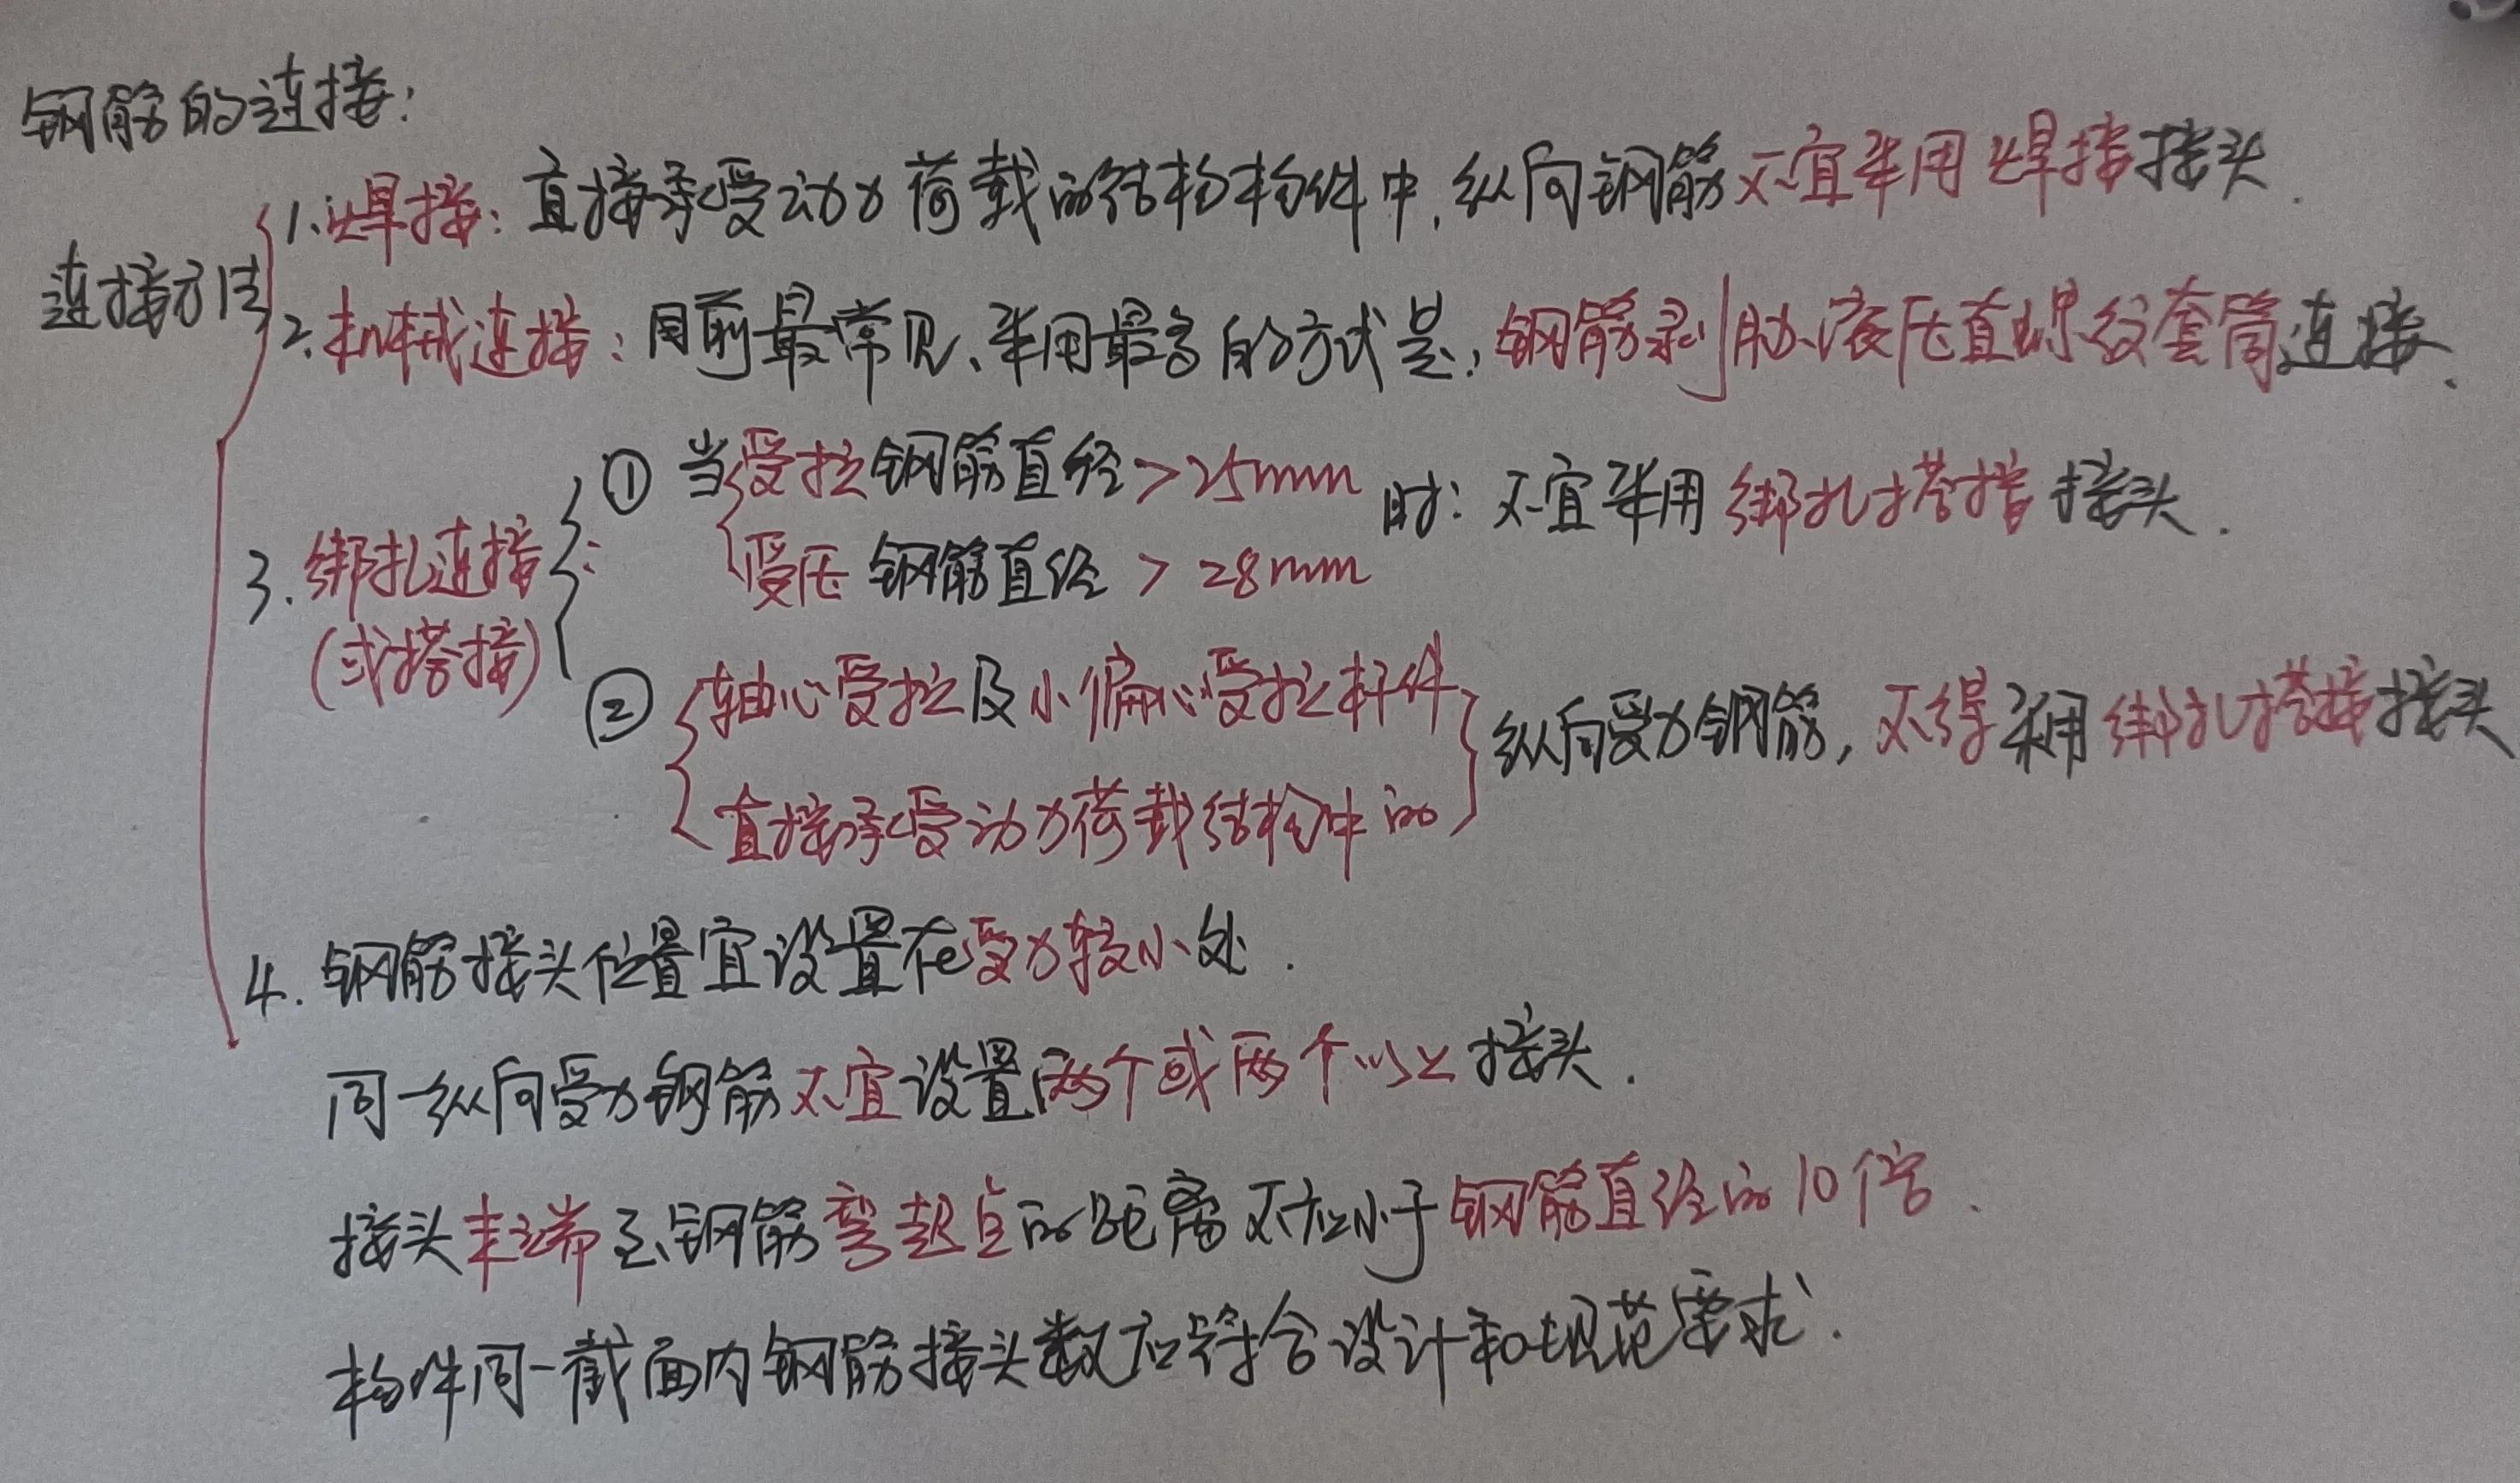 钢筋的连接:
连接方法
1. 焊接: 直接承受动力荷载的结构构件中, 纵向钢筋不宜采用焊接接头.
2. 机械连接: 目前最常见、采用最多的方式是: 钢筋剥肋滚压直螺纹套筒连接.
3. 绑扎连接:
(或搭接)
① 当受拉钢筋直径>25mm
受压钢筋直径>28mm
时: 不宜采用绑扎搭接接头.
② 轴心受拉及小偏心受拉杆件
直接承受动力荷载结构中的
纵向受力钢筋, 不得采用绑扎搭接接头
4. 钢筋接头位置宜设置在受力较小处.
同一纵向受力钢筋不宜设置两个或两个以上接头.
接头末端至钢筋弯起点的距离不应小于钢筋直径的10倍.
构件同一截面内钢筋接头数应符合设计和规范要求.